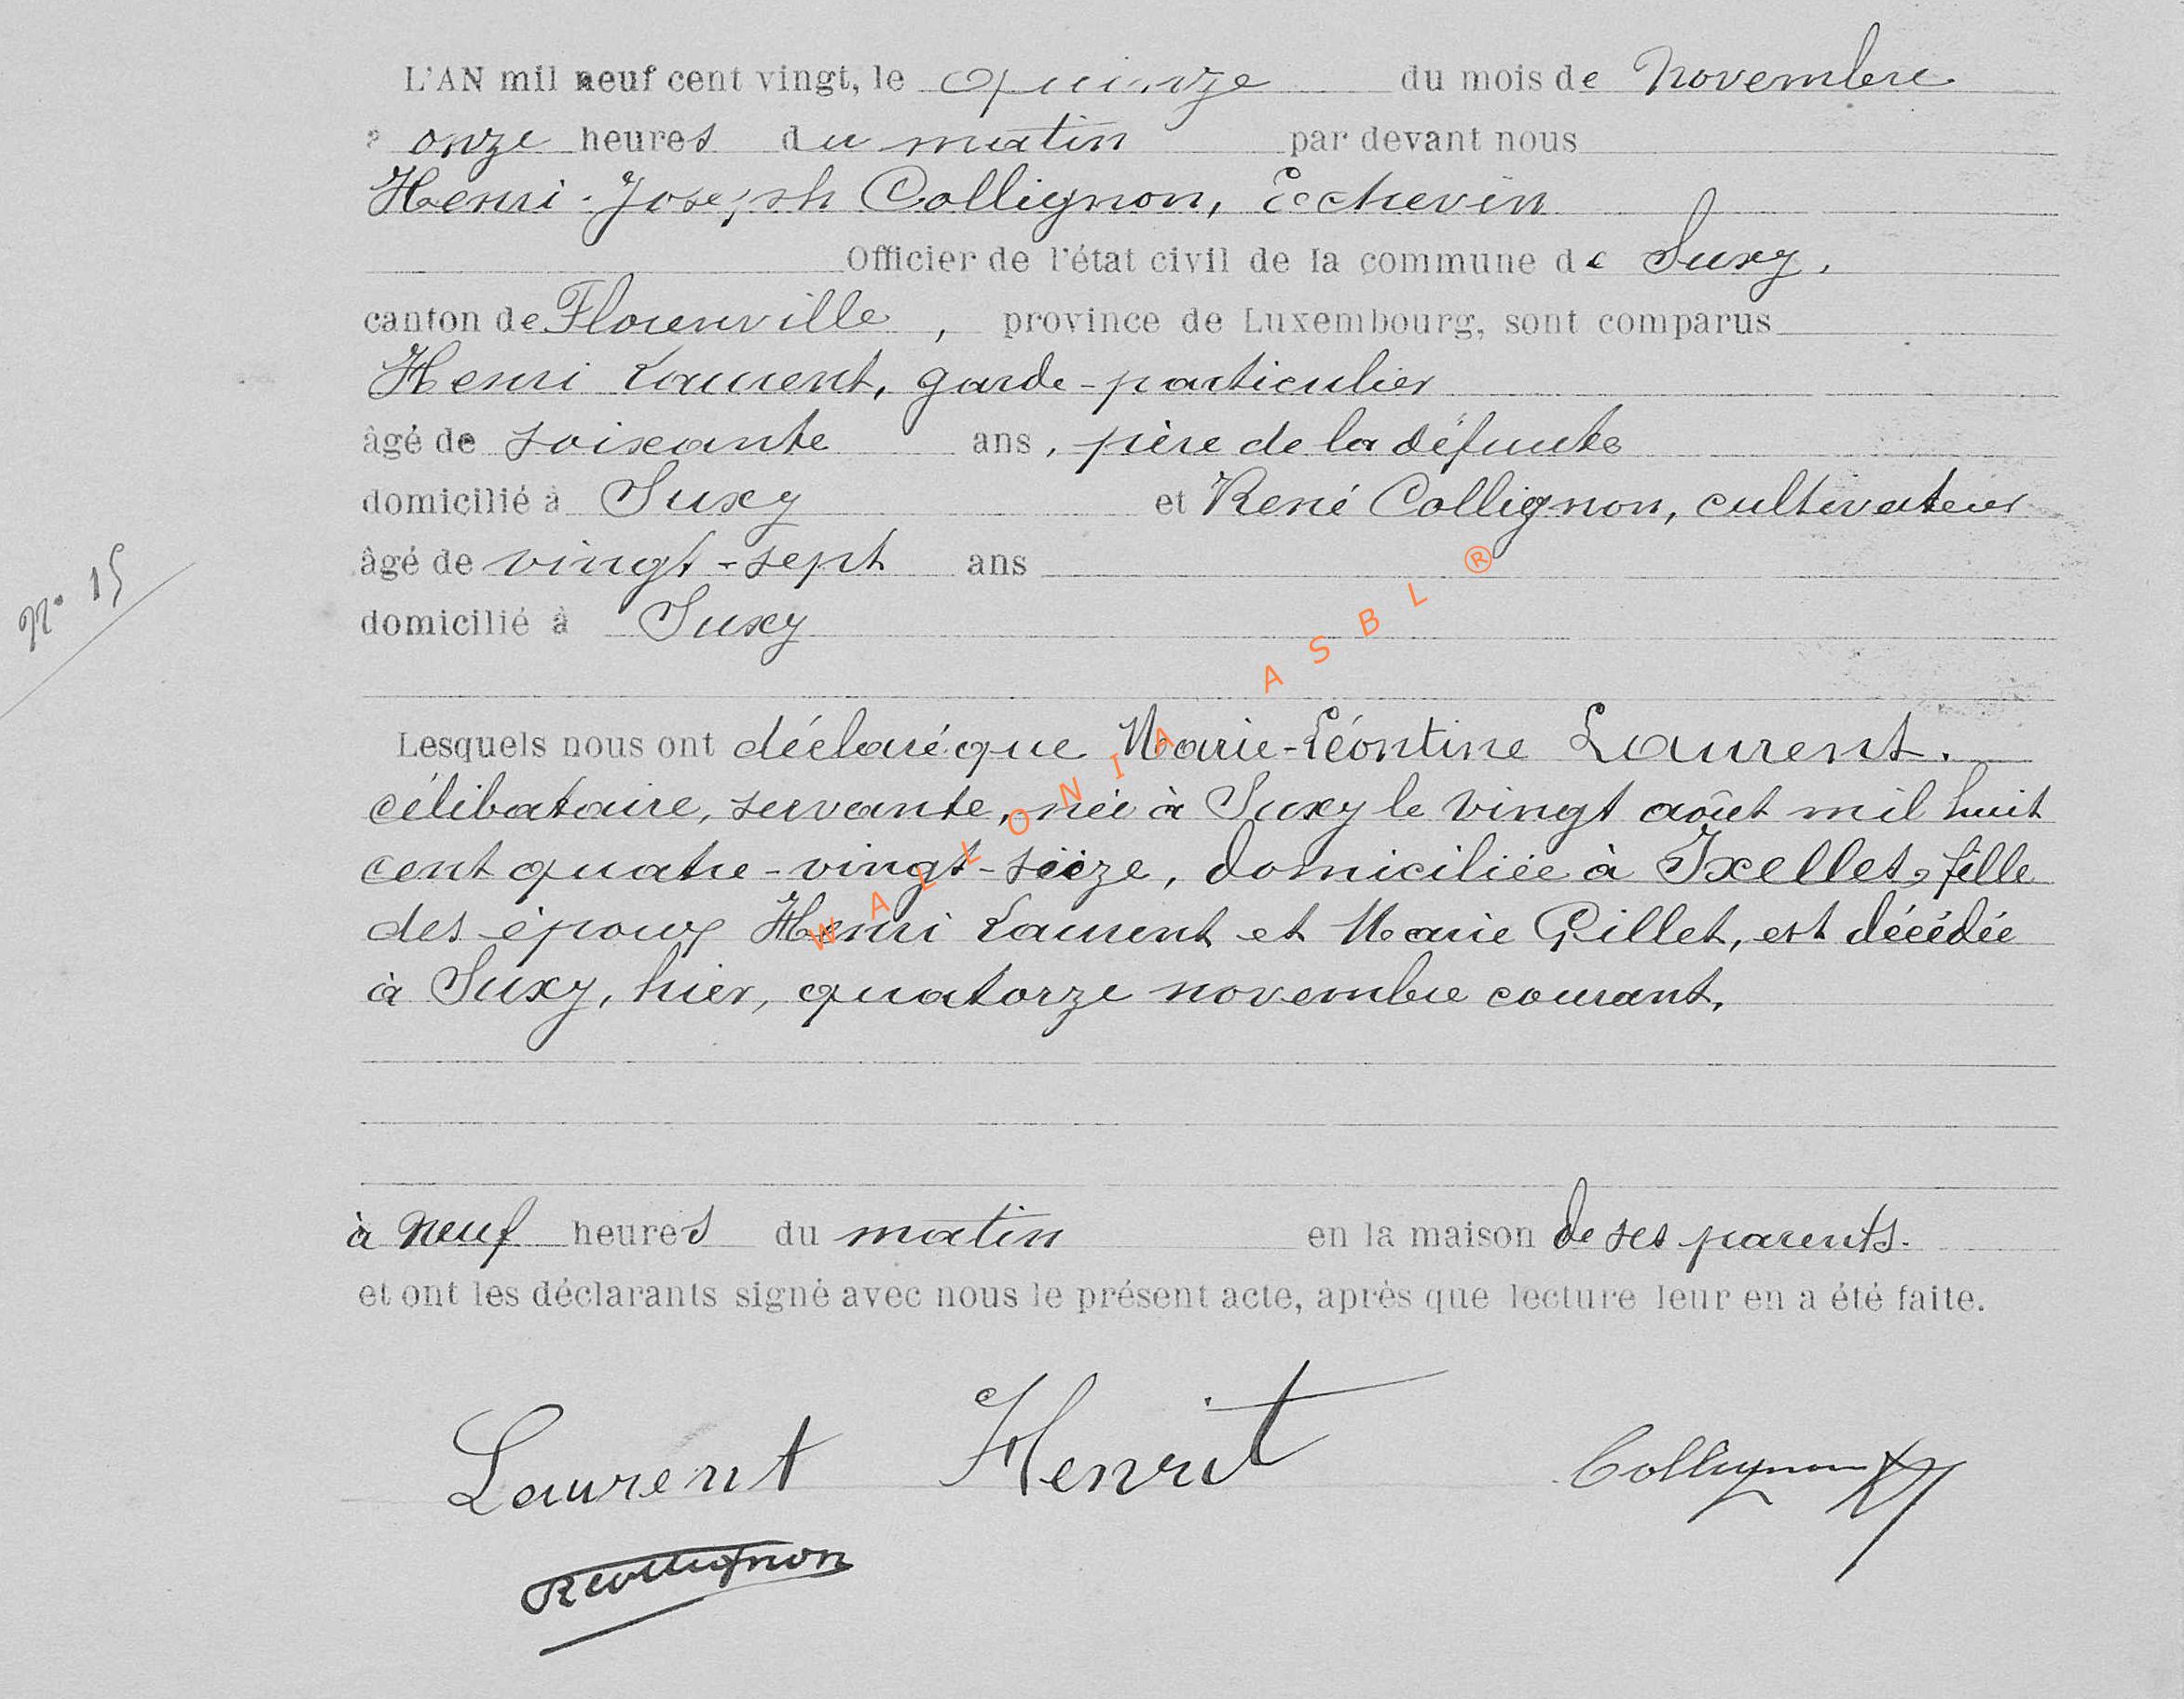 L'AN mil neuf cent vingt, le quinze du mois de Novembre
à onze heures du matin par devant nous
Henri-Joseph Collignon, Echevin
Officier de l'état civil de la commune de Suxy,
canton de Florenville, province de Luxembourg, sont comparus
Henri Laurent, garde-particulier
âgé de soixante ans, père de la défunte
domicilié à Suxy et René Collignon, cultivateur
âgé de vingt-sept ans
domicilié à Suxy
N° 15
Lesquels nous ont déclaré que Marie-Léontine Laurent.
célibataire, servante, née à Suxy le vingt août mil huit
cent quatre-vingt-seize, domiciliée à Ixelles, fille
des époux Henri Laurent et Marie Gillet, est décédée
à Suxy, hier, quatorze novembre courant,
à neuf heures du matin en la maison de ses parents.
et ont les déclarants signé avec nous le présent acte, après que lecture leur en a été faite.
Laurent Henri Collignon
RCollignon
WALLONIA ASBL ®